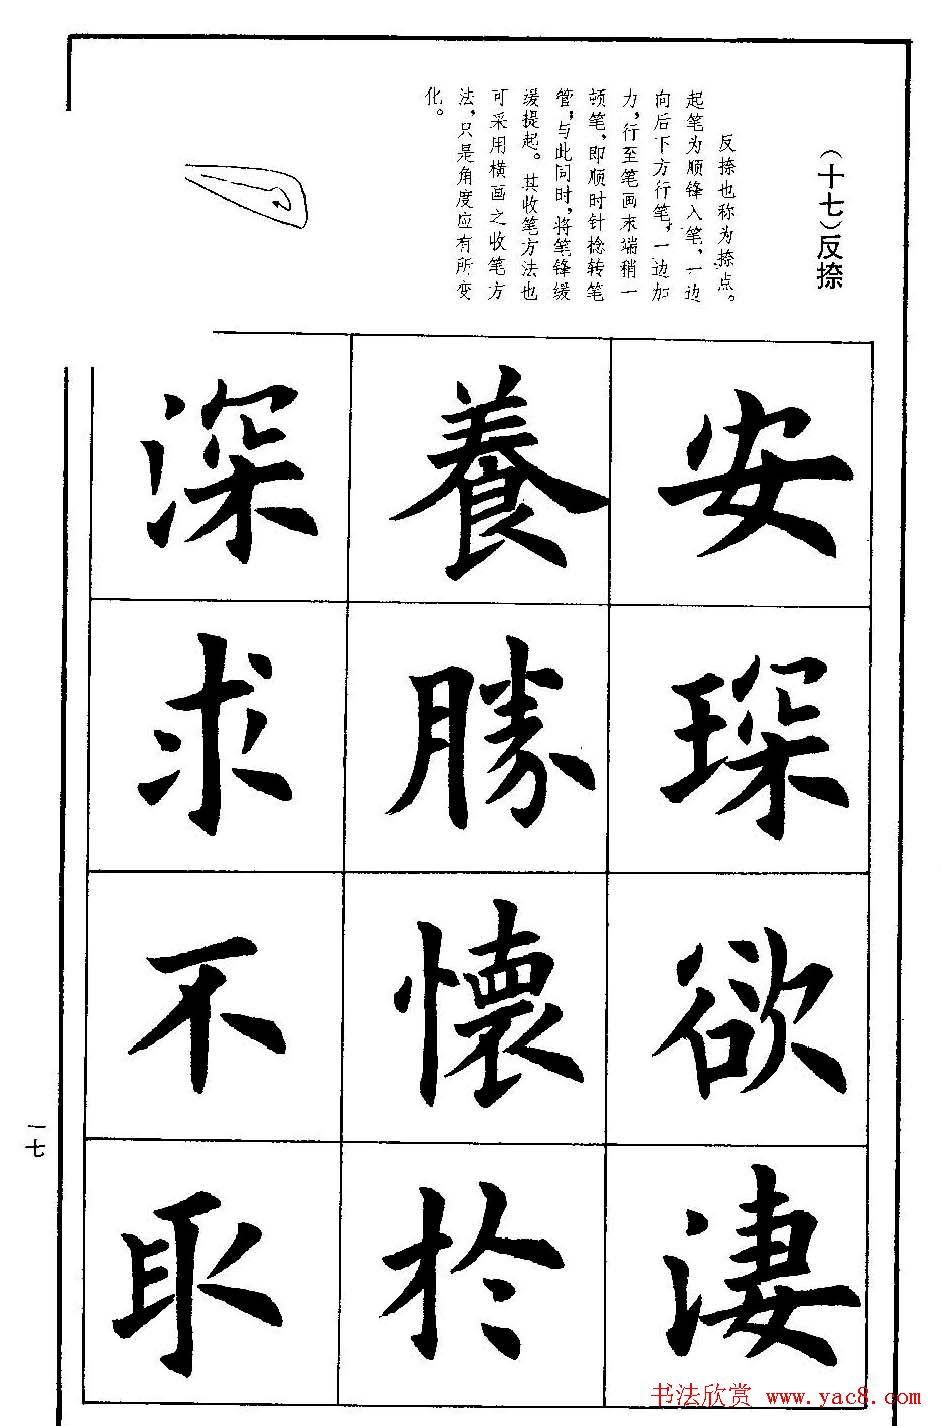 (十七)反捺
反捺也称为捺点。
起笔为顺锋入笔,一边
向后下方行笔,一边加
力,行至笔画末端稍一
顿笔,即顺时针捻转笔
管,与此同时,将笔锋缓
缓提起。其收笔方法也
可采用横画之收笔方
法,只是角度应有所变
化。
安琛欲凄
養勝懷於
深求不取
一七
书法欣赏 www.yac8.com